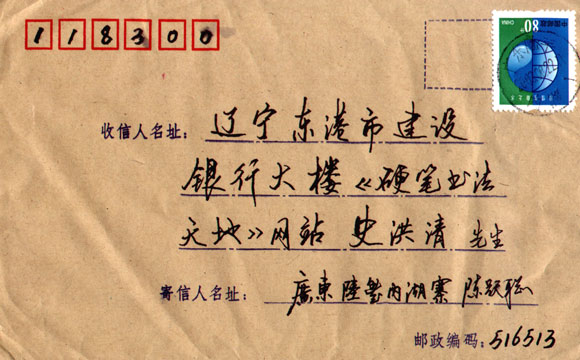 118300
80
中国邮政
CHINA
收信人名址：辽宁东港市建设
银行大楼《硬笔书法
天地》网站 史洪清 先生
寄信人名址：廣東陸豐内湖寨 陈跃聪
邮政编码：516513